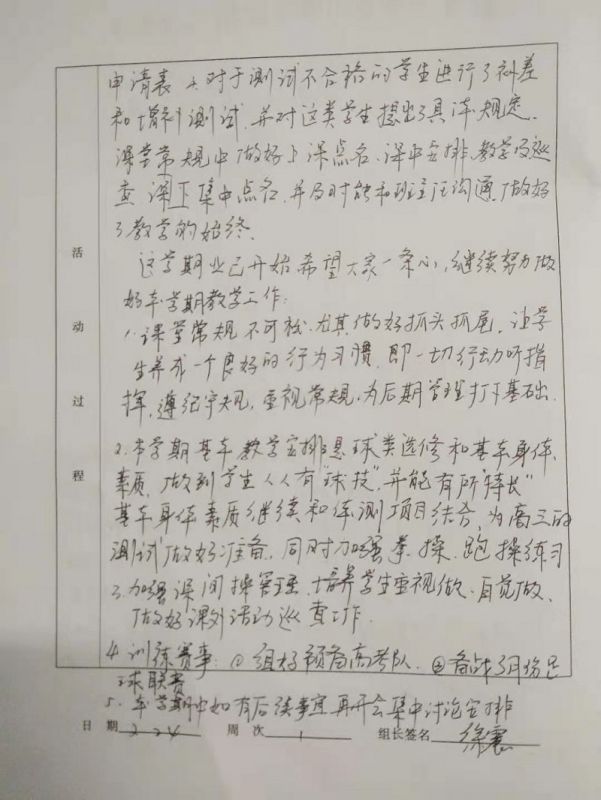 申请表 4.对于测试不合格的学生进行了补差
和增补测试，并对这类学生提出了具体规定。
课堂常规中做好上课点名、课中安排、教学及巡
查，课下集中点名，并及时能和班主任沟通，做好
了教学的始终。
这学期业已开始希望大家一条心，继续努力做
好本学期教学工作：
1.课堂常规不可松，尤其做好抓头抓尾，让学
生养成一个良好的行为习惯，即一切行动听指
挥，遵纪守规，重视常规，为后期管理打下基础。
2.本学期基本教学安排是球类选修和基本身体
素质，做到学生人人有“球技”，并能有所“特长”
基本身体素质继续和体测项目结合，为高三的
测试做好准备，同时加强拳、操、跑操练习
3.加强课间操管理，培养学生重视做、自觉做、
做好课外活动巡查工作.
4.训练赛事：①组好预备高考队 ②备战3月份足
球联赛
5.本学期中如有后续事宜再开会集中讨论安排
活动过程
日 期 2.24 周 次 1 组长签名